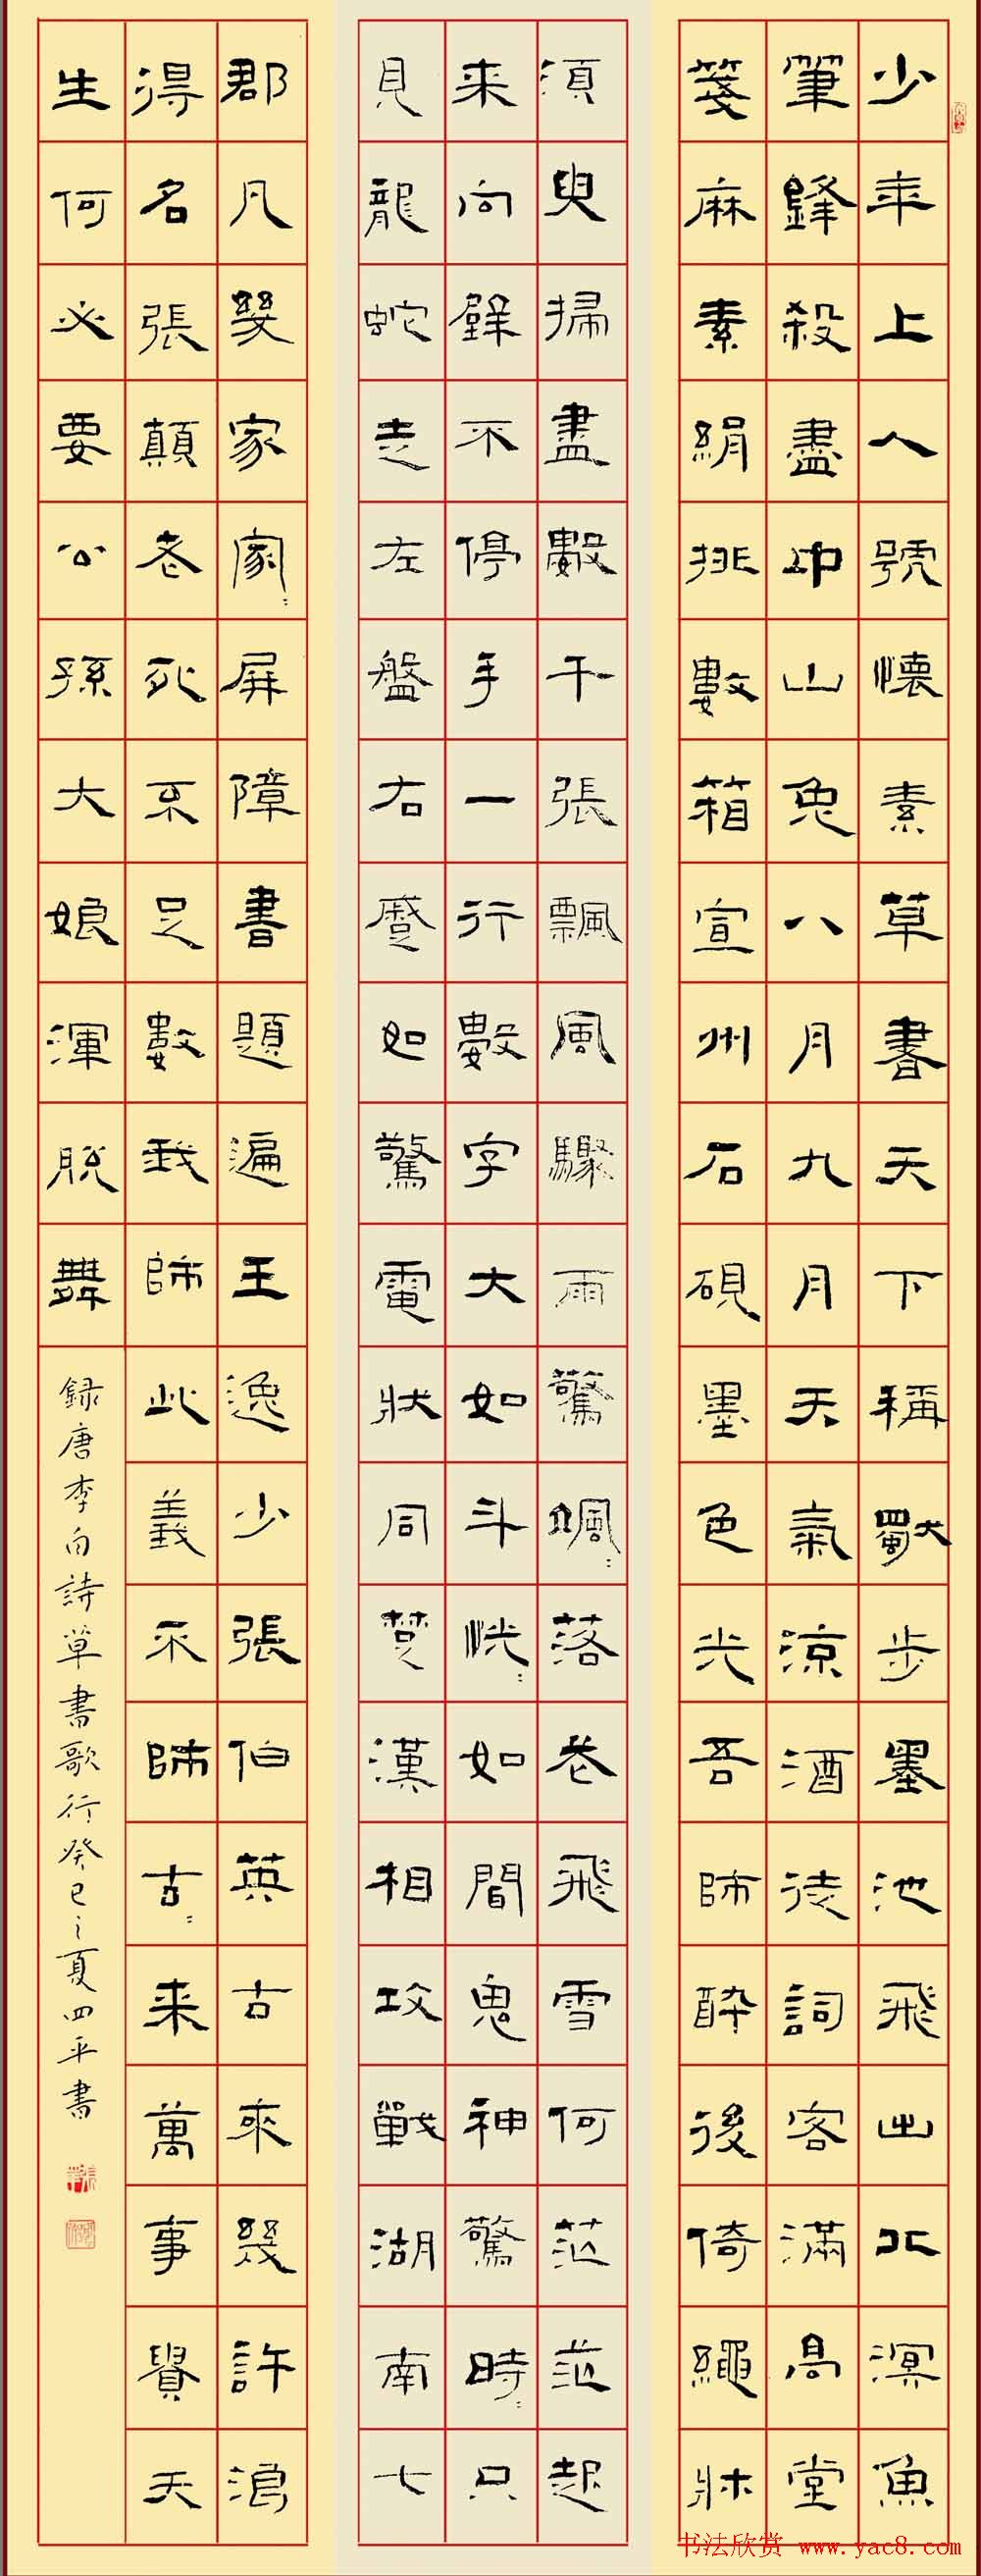 少年上人號懷素草書天下稱獨步墨池飛出北溟魚
筆鋒殺盡中山兔八月九月天氣涼酒徒詞客滿高堂
箋麻素絹排數箱宣州石硯墨色光吾師醉後倚繩牀
須臾掃盡數千張飄風驟雨驚颯〻落花飛雪何茫茫起
来向壁不停手一行數字大如斗恍〻如聞鬼神驚時〻只
見龍蛇走左盤右蹙如驚電狀同楚漢相攻戰湖南七
郡凡幾家家〻屏障書題遍王逸少張伯英古來幾許浪
得名張顛老死不足數我師此義不師古〻来萬事貴天
生何必要公孫大娘渾脫舞
録唐李白詩草書歌行癸巳之夏四平書
书法欣赏 www.yac8.com